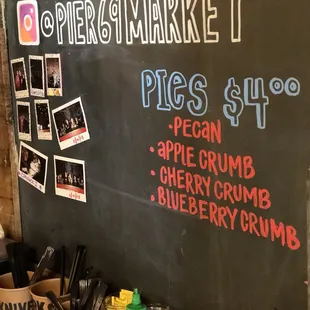 @PIER69MARKET
PIES $4.00
• PECAN
• APPLE CRUMB
• CHERRY CRUMB
• BLUEBERRY CRUMB
KNIVES